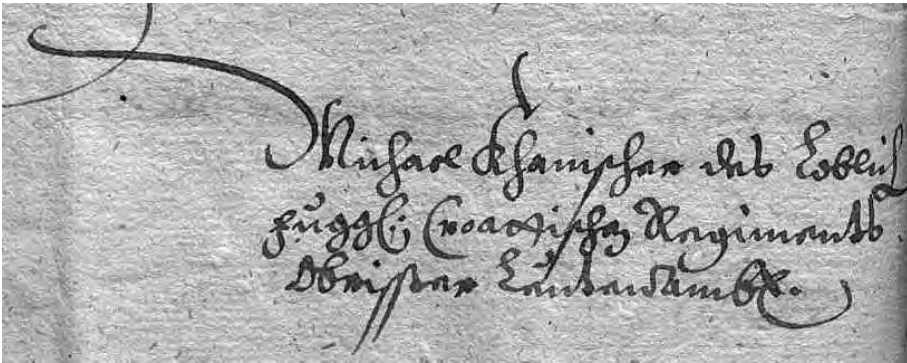 Michael Khanischer des Loblich
Croattischen Regiments
Obrister Leütenambt.